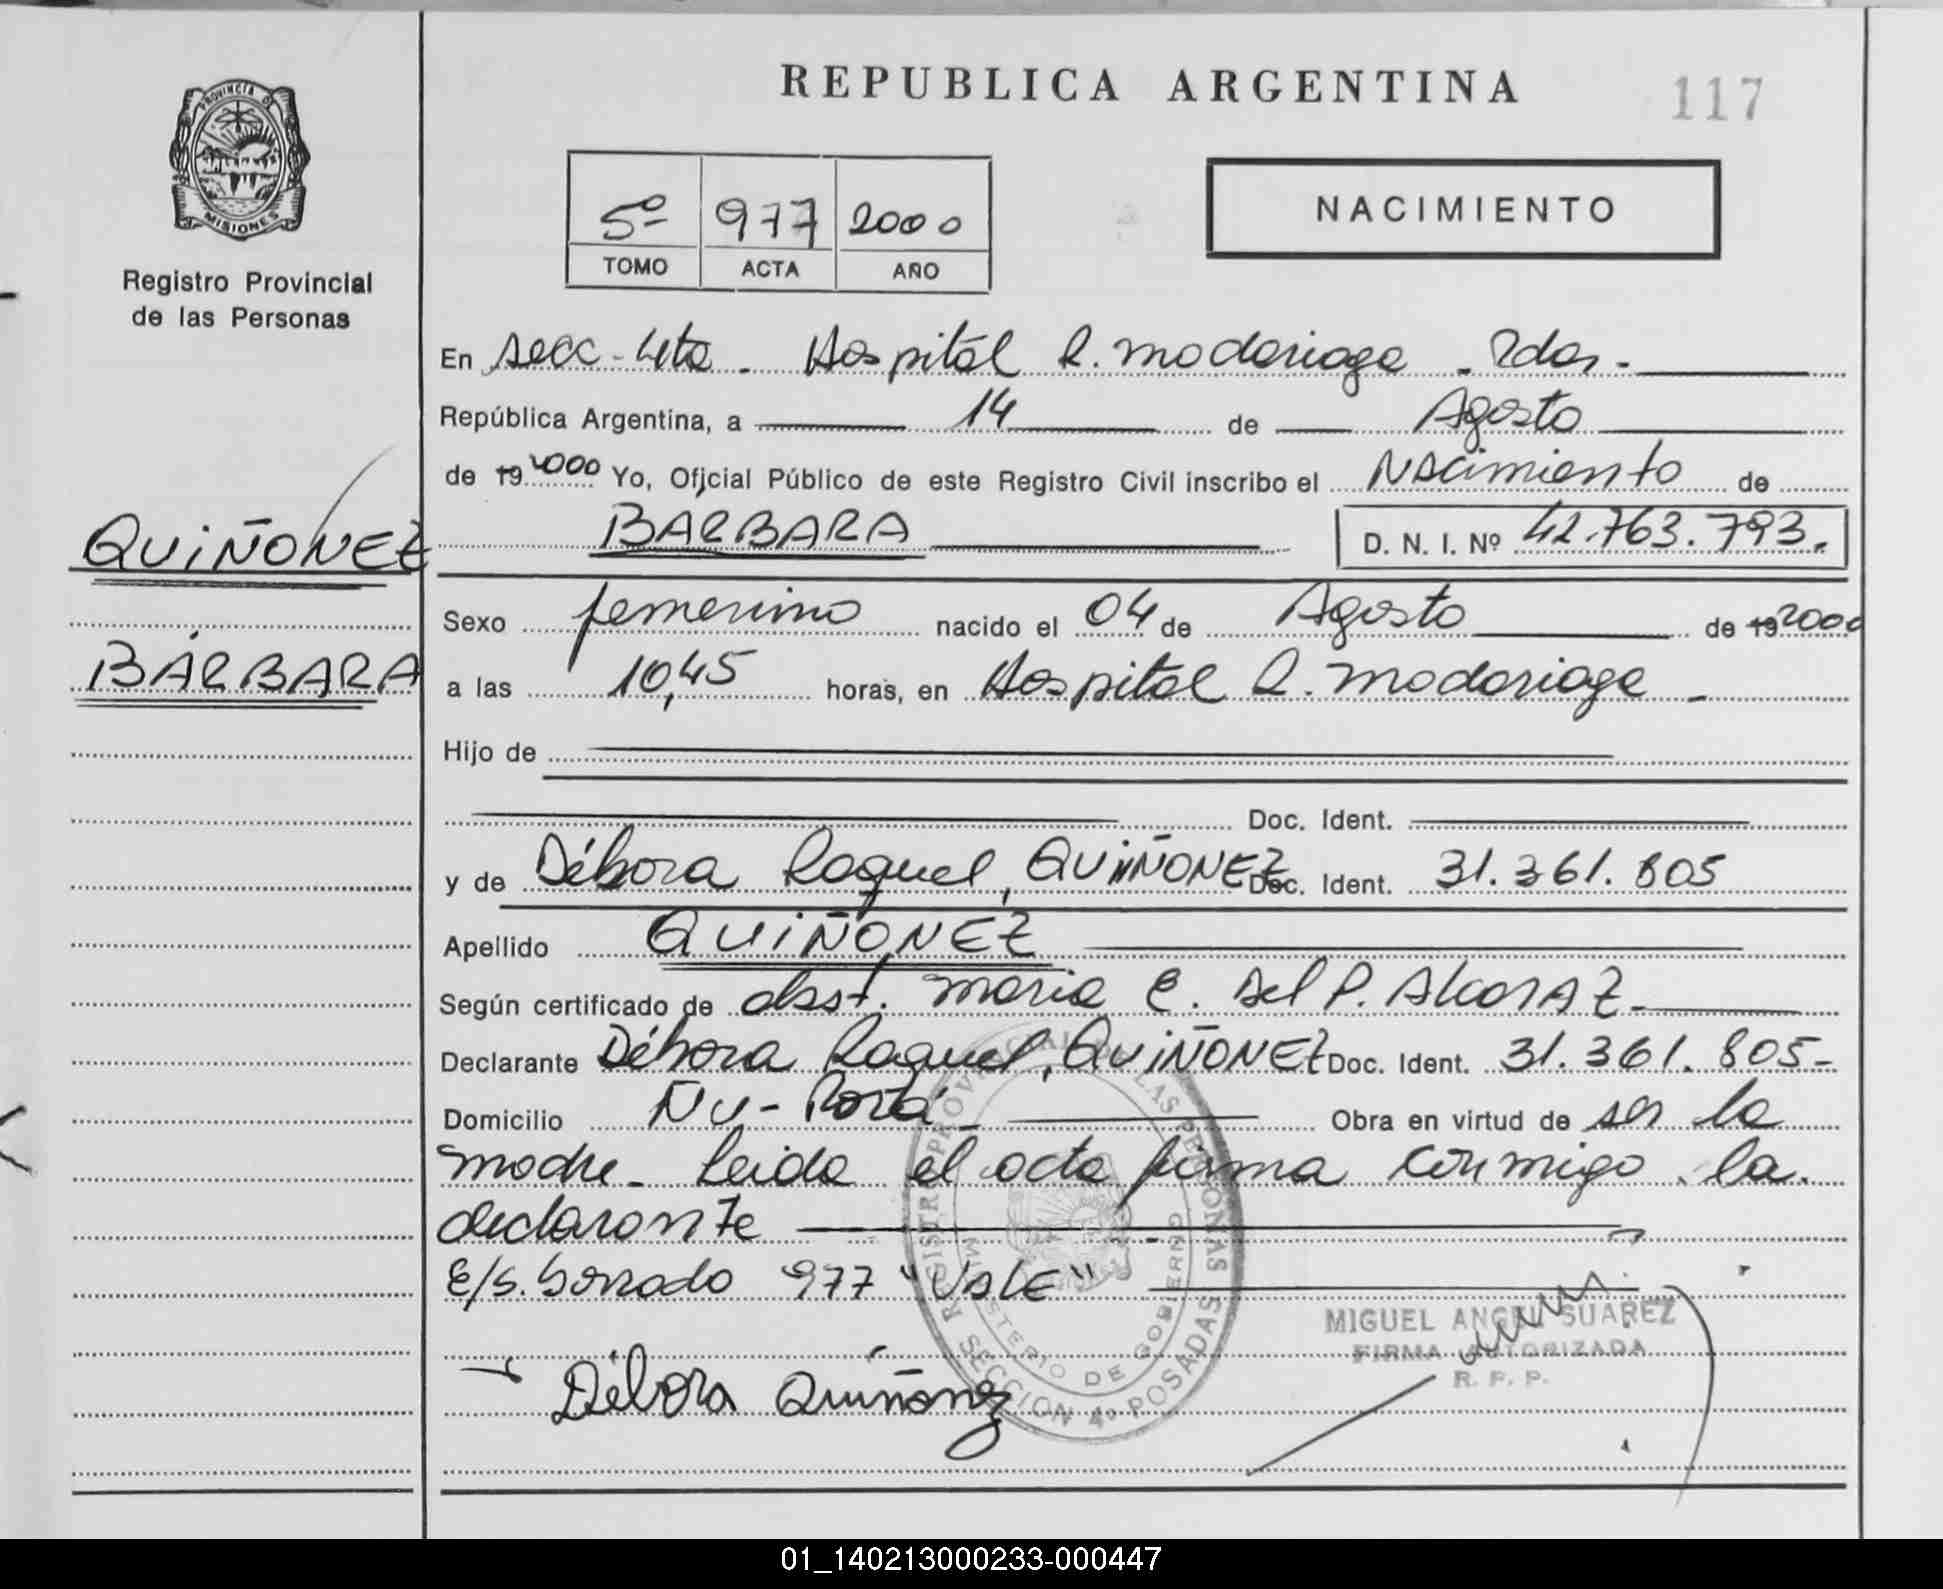 REPUBLICA ARGENTINA
117
PROVINCIA DE
MISIONES
Registro Provincial
de las Personas
5º 977 2000
TOMO ACTA AÑO
NACIMIENTO
En Secc. 4ta. Hospital R. Madariaga - Pdas.
República Argentina, a 14 de Agosto
de 19 2000 Yo, Oficial Público de este Registro Civil inscribo el Nacimiento de
BARBARA D. N. I. Nº 42.763.793.
QUIÑONEZ
BÁRBARA
Sexo femenino nacido el 04 de Agosto de 19 2000
a las 10,45 horas, en Hospital R. Madariaga -
Hijo de
Doc. Ident.
y de Débora Raquel, QUIÑONEZ Doc. Ident. 31.361.805
Apellido QUIÑONEZ
Según certificado de obst. Maria E. del P. Alcaraz
Declarante Débora Raquel, QUIÑONEZ Doc. Ident. 31.361.805-
Domicilio Ñu-Porá Obra en virtud de ser la
madre - Leida el acta firma conmigo la
declarante
E/S. borrado 977 "Vale"
REGISTRO PROVINCIAL DE LAS PERSONAS
MINISTERIO DE GOBIERNO
SECCION 4º POSADAS
MIGUEL ANGEL SUAREZ
FIRMA AUTORIZADA
R. P. P.
Débora Quiñonez
01_140213000233-000447